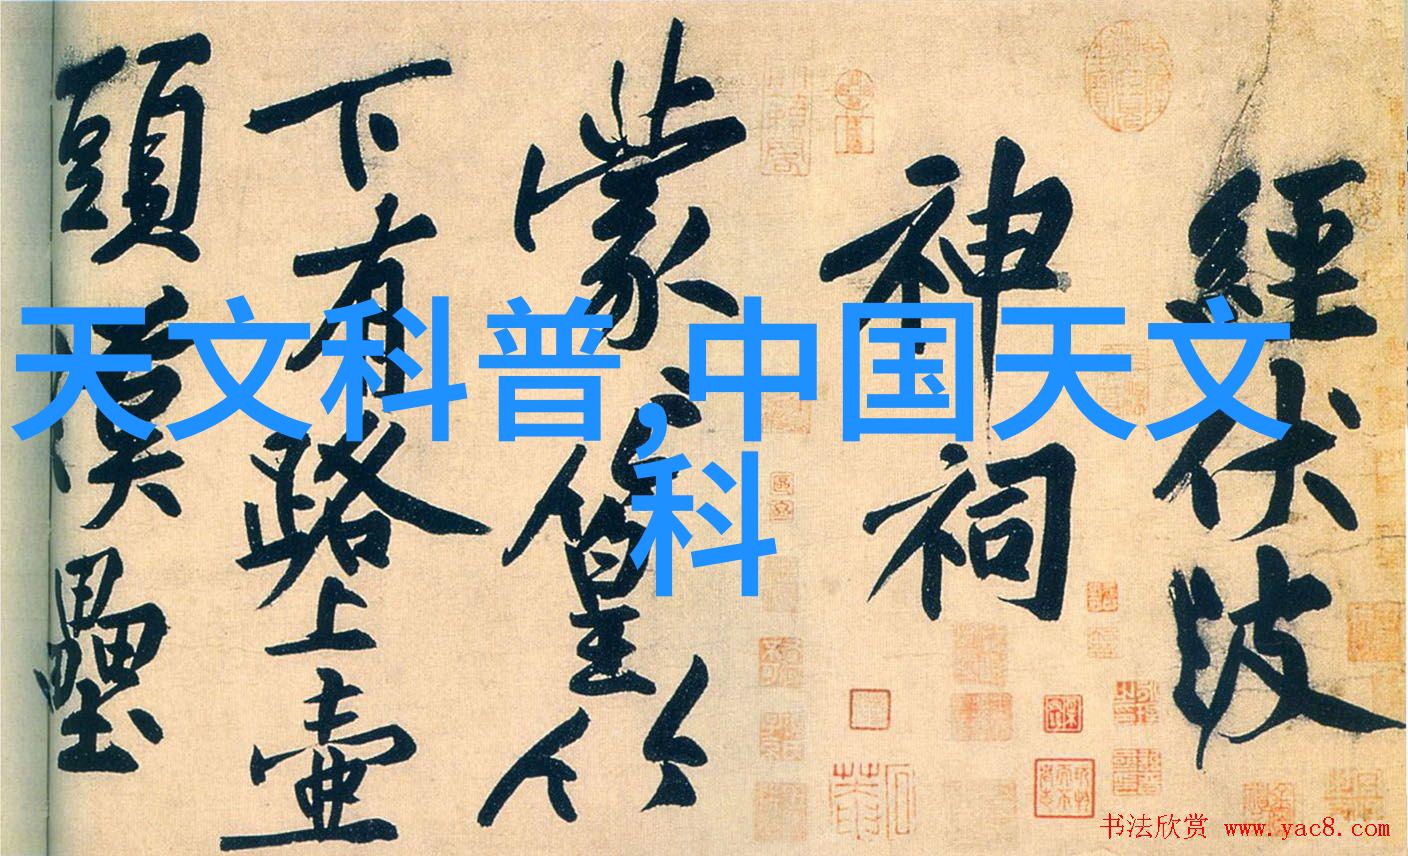 經伏波
神祠
蒙〻篁竹
下有路上壷
頭漢壘
天文科普,中国天文
科
书法欣赏 www.yac8.com